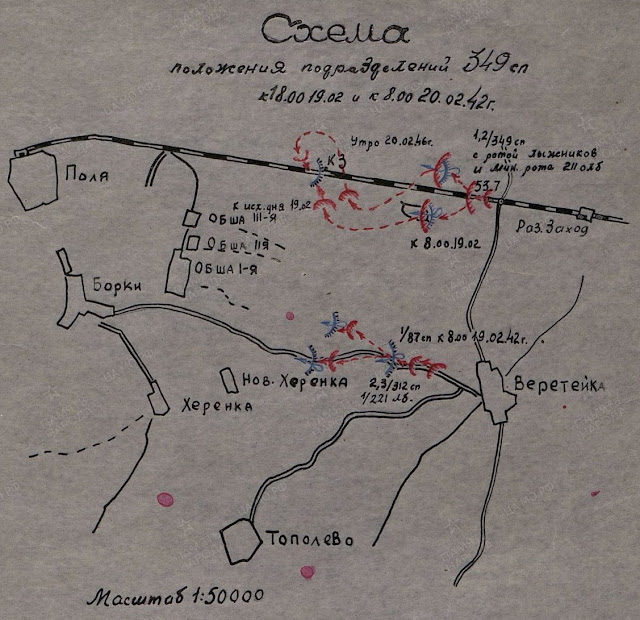 Схема
положения подразделений 349 сп
к 18.00 19.02 и к 8.00 20.02.42г.
Утро 20.02.46г.
1,2/349 сп
с ротой лыжников
и мин. рота 211 олб
КЗ
53,7
Поля
к исх. дня 19.02
Раз. Заход
Обша III-я
к 8.00.19.02
Обша IIя
Обша I-я
Борки
1/87сп к 8.00 19.02.42г.
Нов. Херенка
2,3/312 сп
1/221 лб.
Веретейка
Херенка
Тополево
Масштаб 1:50000